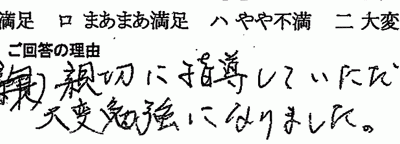 満足 ロ まあまあ満足 ハ やや不満 ニ 大変
ご回答の理由
親切に指導していただ
大変勉強になりました。